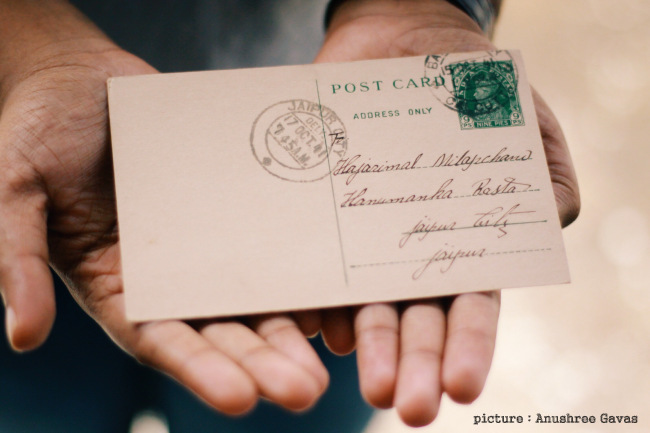 POST CARD
ADDRESS ONLY
JAIPUR
DELY
17 OCT. 41
7.45A.M.
9 9
PS NINE PIES PS
Hajarimal Milapchand
Hanumanka Rasta
jaipur City
jaipur
picture : Anushree Gavas